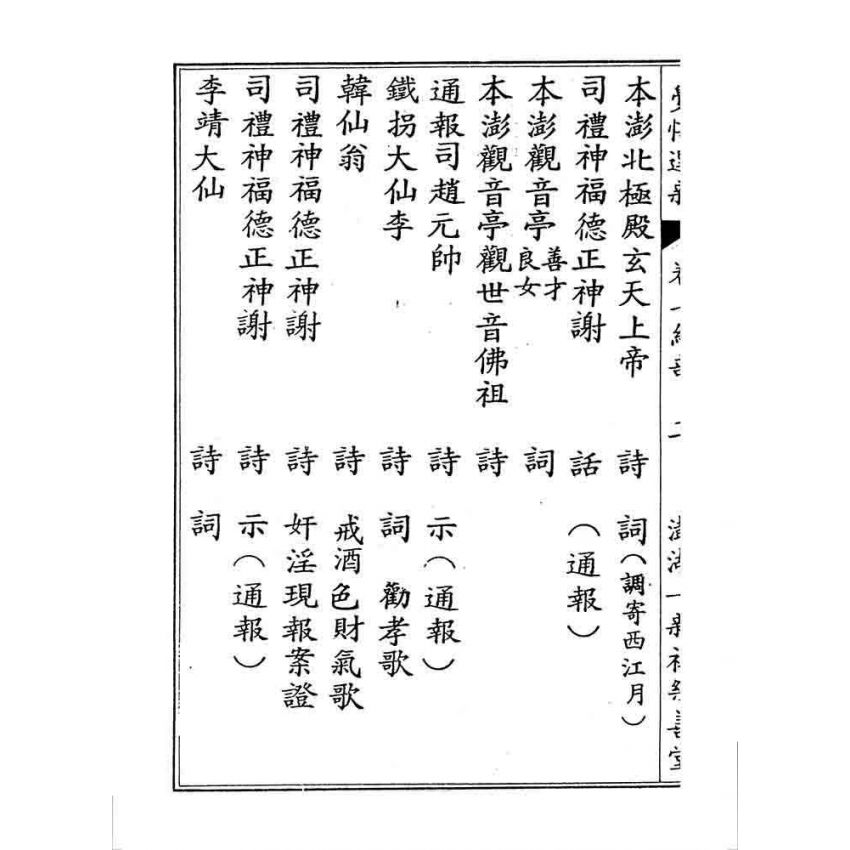 覺悟選新 卷一 二 澎湖一新社樂善堂
本澎北極殿玄天上帝 詩 詞（調寄西江月）
司禮神福德正神謝 話（通報）
本澎觀音亭 善才 良女 詞
本澎觀音亭觀世音佛祖 詩
通報司趙元帥 詩 示（通報）
鐵拐大仙李 詩 詞 勸孝歌
韓仙翁 詩 戒酒色財氣歌
司禮神福德正神謝 詩 奸淫現報案證
司禮神福德正神謝 詩 示（通報）
李靖大仙 詩 詞